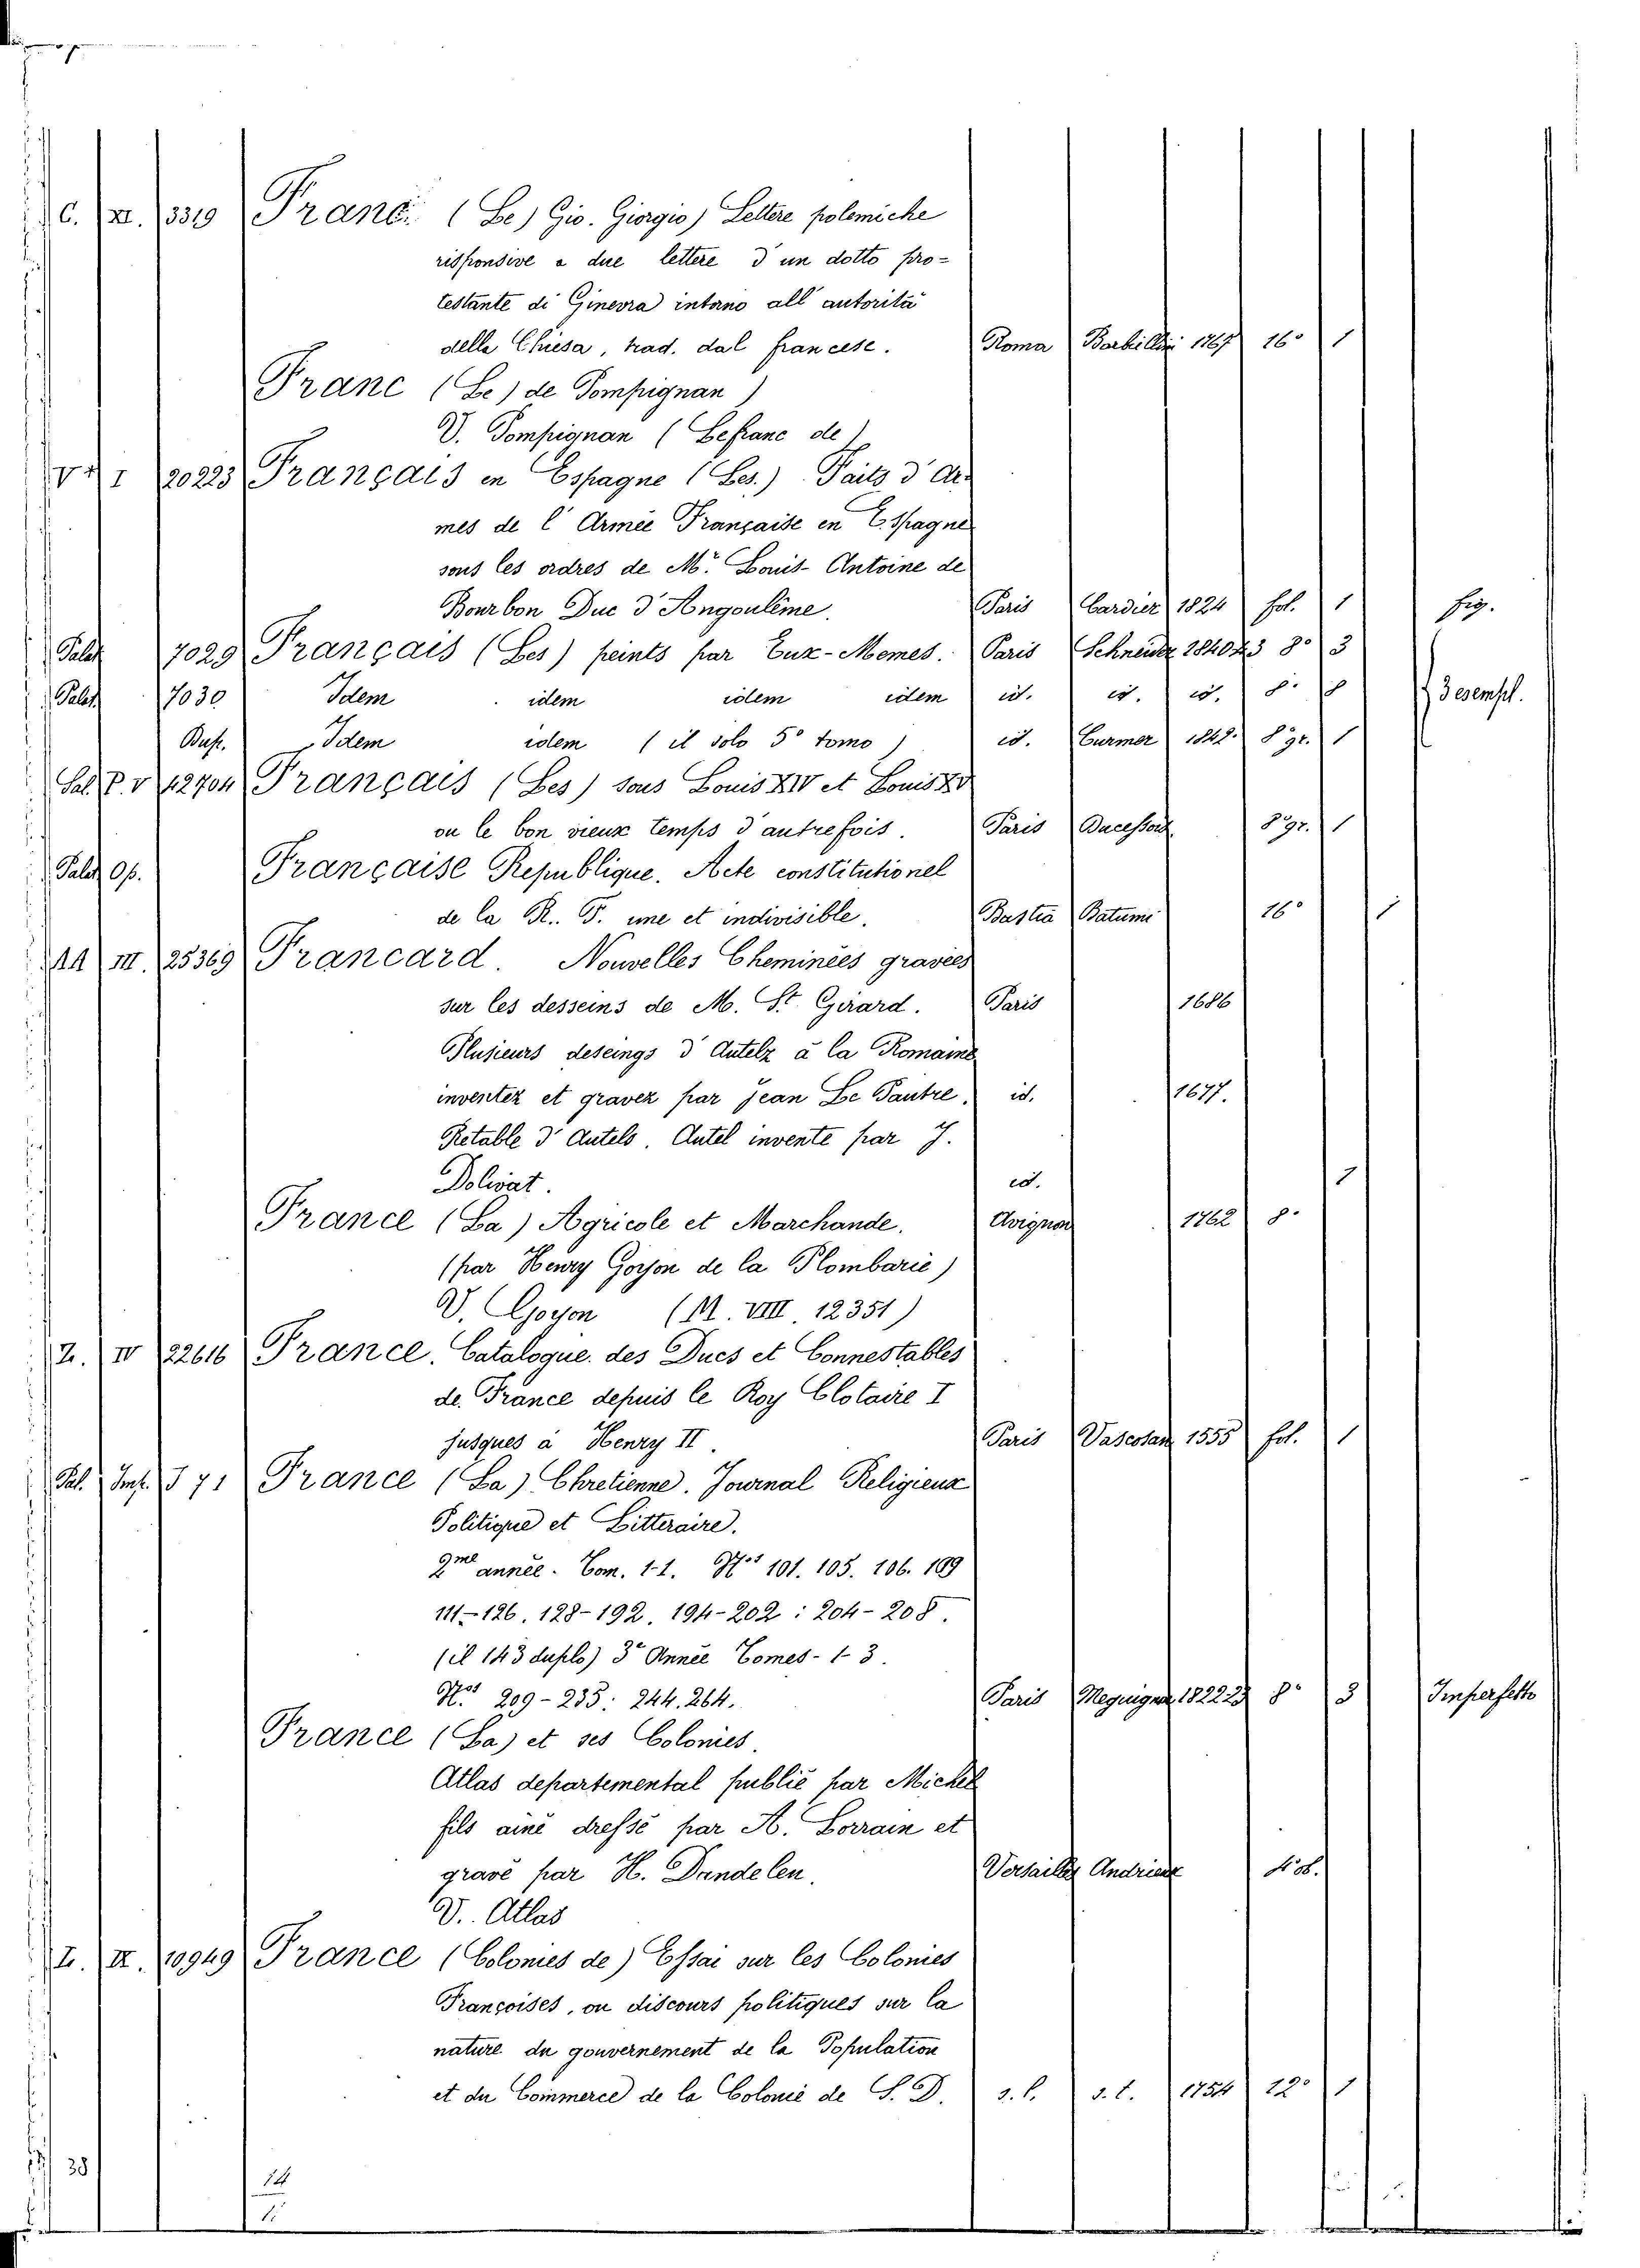 C. XI. 3319 Franc. (Le) Gio. Giorgio) Lettere polemiche
risponsive a due lettere d'un dotto pro=
testante di Ginevra intorno all'autorità
della Chiesa, trad. dal francese. Roma Barbiellini 1767 16° 1
Franc (Le) de Pompignan)
V. Pompignan (Lefranc de)
I 20223 Français en Espagne (Les.) Faits d'Ar-
mes de l'Armée Française en Espagne
sous les ordres de Mr. Louis-Antoine de
Bourbon Duc d'Angoulême. Paris Cardier 1824 fol. 1 fig.
Palat 7029 Français (Les) peints par Eux-Memes. Paris Schneider 1840 43 8° 3
Palat 7030 Idem idem idem idem id. id. id. 8° 8 3 esempl.
Busp. Idem idem (il solo 5° tomo) id. Curmer 1842. 8° gr. 1
Sal. P. V 42704 Français (Les) sous Louis XIV et Louis XV
ou le bon vieux temps d'autrefois. Paris Ducessois 8° gr. 1
Palat Op. Française Republique. Acte constitutionel
de la R. F. une et indivisible. Bastia Batumi 16° 1
AA III. 25369 Francard. Nouvelles Cheminées gravées
sur les desseins de M. St. Girard. Paris 1686
Plusieurs deseings d'Autelz à la Romaine
inventez et gravez par Jean Le Pautre. id. 1677.
Retable d'Autels. Autel invente par J.
Dolivat. id. 1
France (La) Agricole et Marchande. Avignon 1762 8°
(par Henry Goyon de la Plombarie)
V. Goyon (M. VIII. 12351)
Z. IV 22616 France. Catalogue des Ducs et Connestables
de France depuis le Roy Clotaire I
jusques à Henry II. Paris Vascosan 1555 fol. 1
Pal. Imp. I 71 France (La) Chretienne. Journal Religieux
Politique et Litteraire.
2me année. Tom. 1-1. Nos 101. 105. 106. 109
111-126. 128-192. 194-202: 204-208.
(il 143 duplo) 3e Année Tomes - 1-3.
Nos 209-235: 244. 264. Paris Mequignon 1822 23 8° 3 Imperfetto
France (La) et ses Colonies.
Atlas departemental publié par Michel
fils ainé dressé par A. Lorrain et
gravé par H. Dandelen. Versailles Andrieux 4° ob.
V. Atlas
II. 10949 France (Colonies de) Essai sur les Colonies
Françoises, ou discours politiques sur la
nature du gouvernement de la Population
et du Commerce de la Colonie de S. D. s. l. s. t. 1754 12° 1
38
14
1.